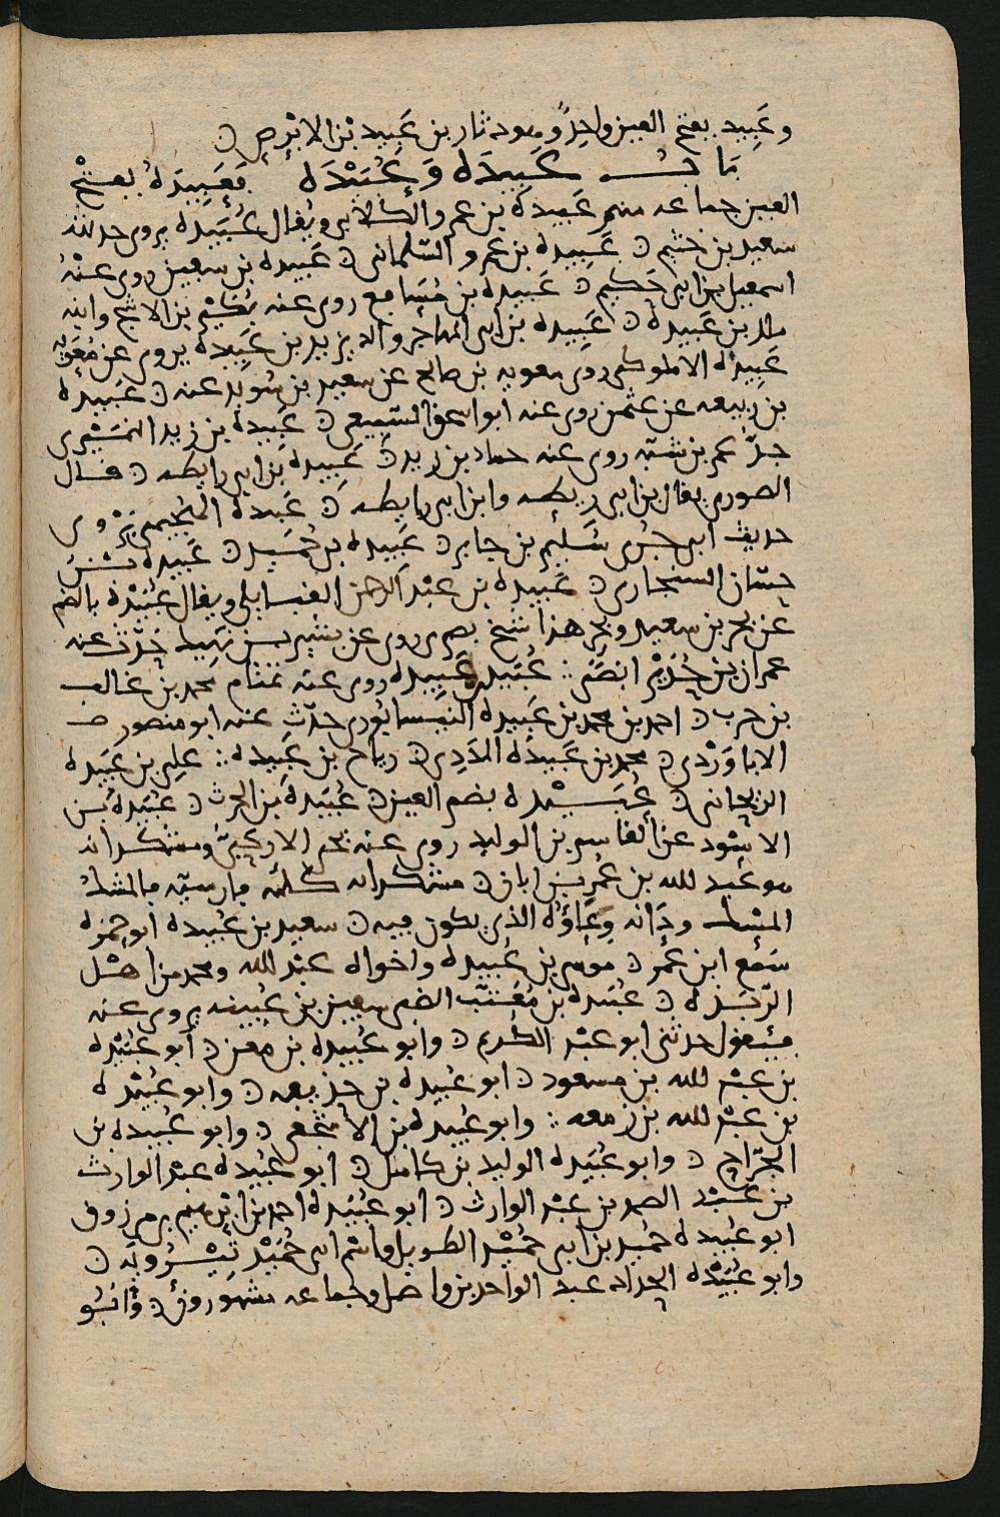 وعَبِيد بفتح العين واحدٌ وهو دثار بن عَبِيد بن الابرص ⁘
بَابُ عَبِيدَه وَعُبَيْدَه فعَبِيدَهُ بفتح
العين جماعه منهم عَبِيدَة بن عمرو الكلابي ويُقال عُبَيده يروي حديثه
سعيد بن خثيم ⁘ عَبِيده بن عمرو السَّلماني ⁘ عَبيده بن سفين روى عنه
اسمعيل بن ابي حَكيم ⁘ عَبيده بن مُسَافع روى عنه بُكَيْر بن الاشج وابنه
مالك بن عَبيدة ⁘ عَبِيده بن ابي المهاجر والد يزيد بن عَبِيده يروي عن مُعويه
عَبِيدَه الاملوكي روى معويه بن صالح عن سعيد بن سُويد عنه ⁘ عَبيدة
بن ربيعه عن عثمن روى عنه ابو اسحق السَّبيعي ⁘ عَبيدة بن زيد النُمَيْري
جدّ عمر بن شبّه روى عنه حماد بن زيد ⁘ عَبيدة بن ابي رايطه ⁘ قال
الصوري يقال بن ابي ريطه وابن ابي رايطه ⁘ عَبِيدة الهُجَيمي يَرْوي
حديث ابي جُرَي سُلَيم بن جابر ⁘ عَبيده بن حُميد ⁘ عَبيده بنُ
حسّان السنجاري ⁘ عَبِيدة بن عبْد الرحمن ويقال عُبَيْدة بالضم
عن يحيى بن سعيد هذا شيخ بصري روى عن بشير بن نَهِيك حَدّث عنه
عمران بن حُدَيْر ايضًا ⁘ عُبَيد بن عَبِيده روى عنه تمتام محمد بن غالب
بن حرب ⁘ احمد بن محمد بن عَبيدة النَيسابُوري حدّث عنه ابو منصور
الاباوَرْدي ⁘ محمد بن عَبيدَه المَددِي ⁘ رباح بن عَبِيده ⁘ علي بن عَبِيده
الريحاني ⁘ عُبَيْده بضم العين ⁘ عُبَيدة بن الحرث ⁘ عُبَيْدَة بن
الاسْود عن القاسم بن الوليد روى عنه يحيى الارحبيّ ومشكدانه
هو عَبد الله بن عُمر بن ابان ⁘ مشكدانه كلمه فارسيّه فالمشك
المسك ودَانه وِعَاؤُه الذي يكون فيه ⁘ سعيد بن عُبيده ابو حمزه
سَمع ابن عُمر ⁘ موسى بن عُبيده واخواه عبد الله ومحمد من اهل
الرَّبَذَه ⁘ عُبَيدة بن مُعَتِّب الضبي سفين بن عُيينه يروي عنه
فيقول حدثني ابو عبْد الكريم ⁘ وابو عُبيدة بن معن ⁘ ابو عُبَيْدة
بن عبْد الله بن مسعود ⁘ ابو عُبيده بن حذيفه ⁘ وابو عُبيْده
بن عبْد الله بن زمعه ⁘ وابو عُبيده بن الاشجعي ⁘ وابو عُبيده بن
الجرّاح ⁘ وابو عُبَيْده الوليد بن كامل ⁘ ابو عُبَيْدة عبد الوارث
بن عبْد الصمد بن عبْد الوارث ⁘ ابو عُبَيْدة احمد بن ابرهيم بن مرزوق
ابو عُبيده حُميد بن ابي حُميْد الطويل واسم ابي حُميْد تِيْرُويَه ⁘
وابو عُبَيْدَه الحداد عبد الواحد بن واصل وجماعه مشهورون ⁘ وَابُو